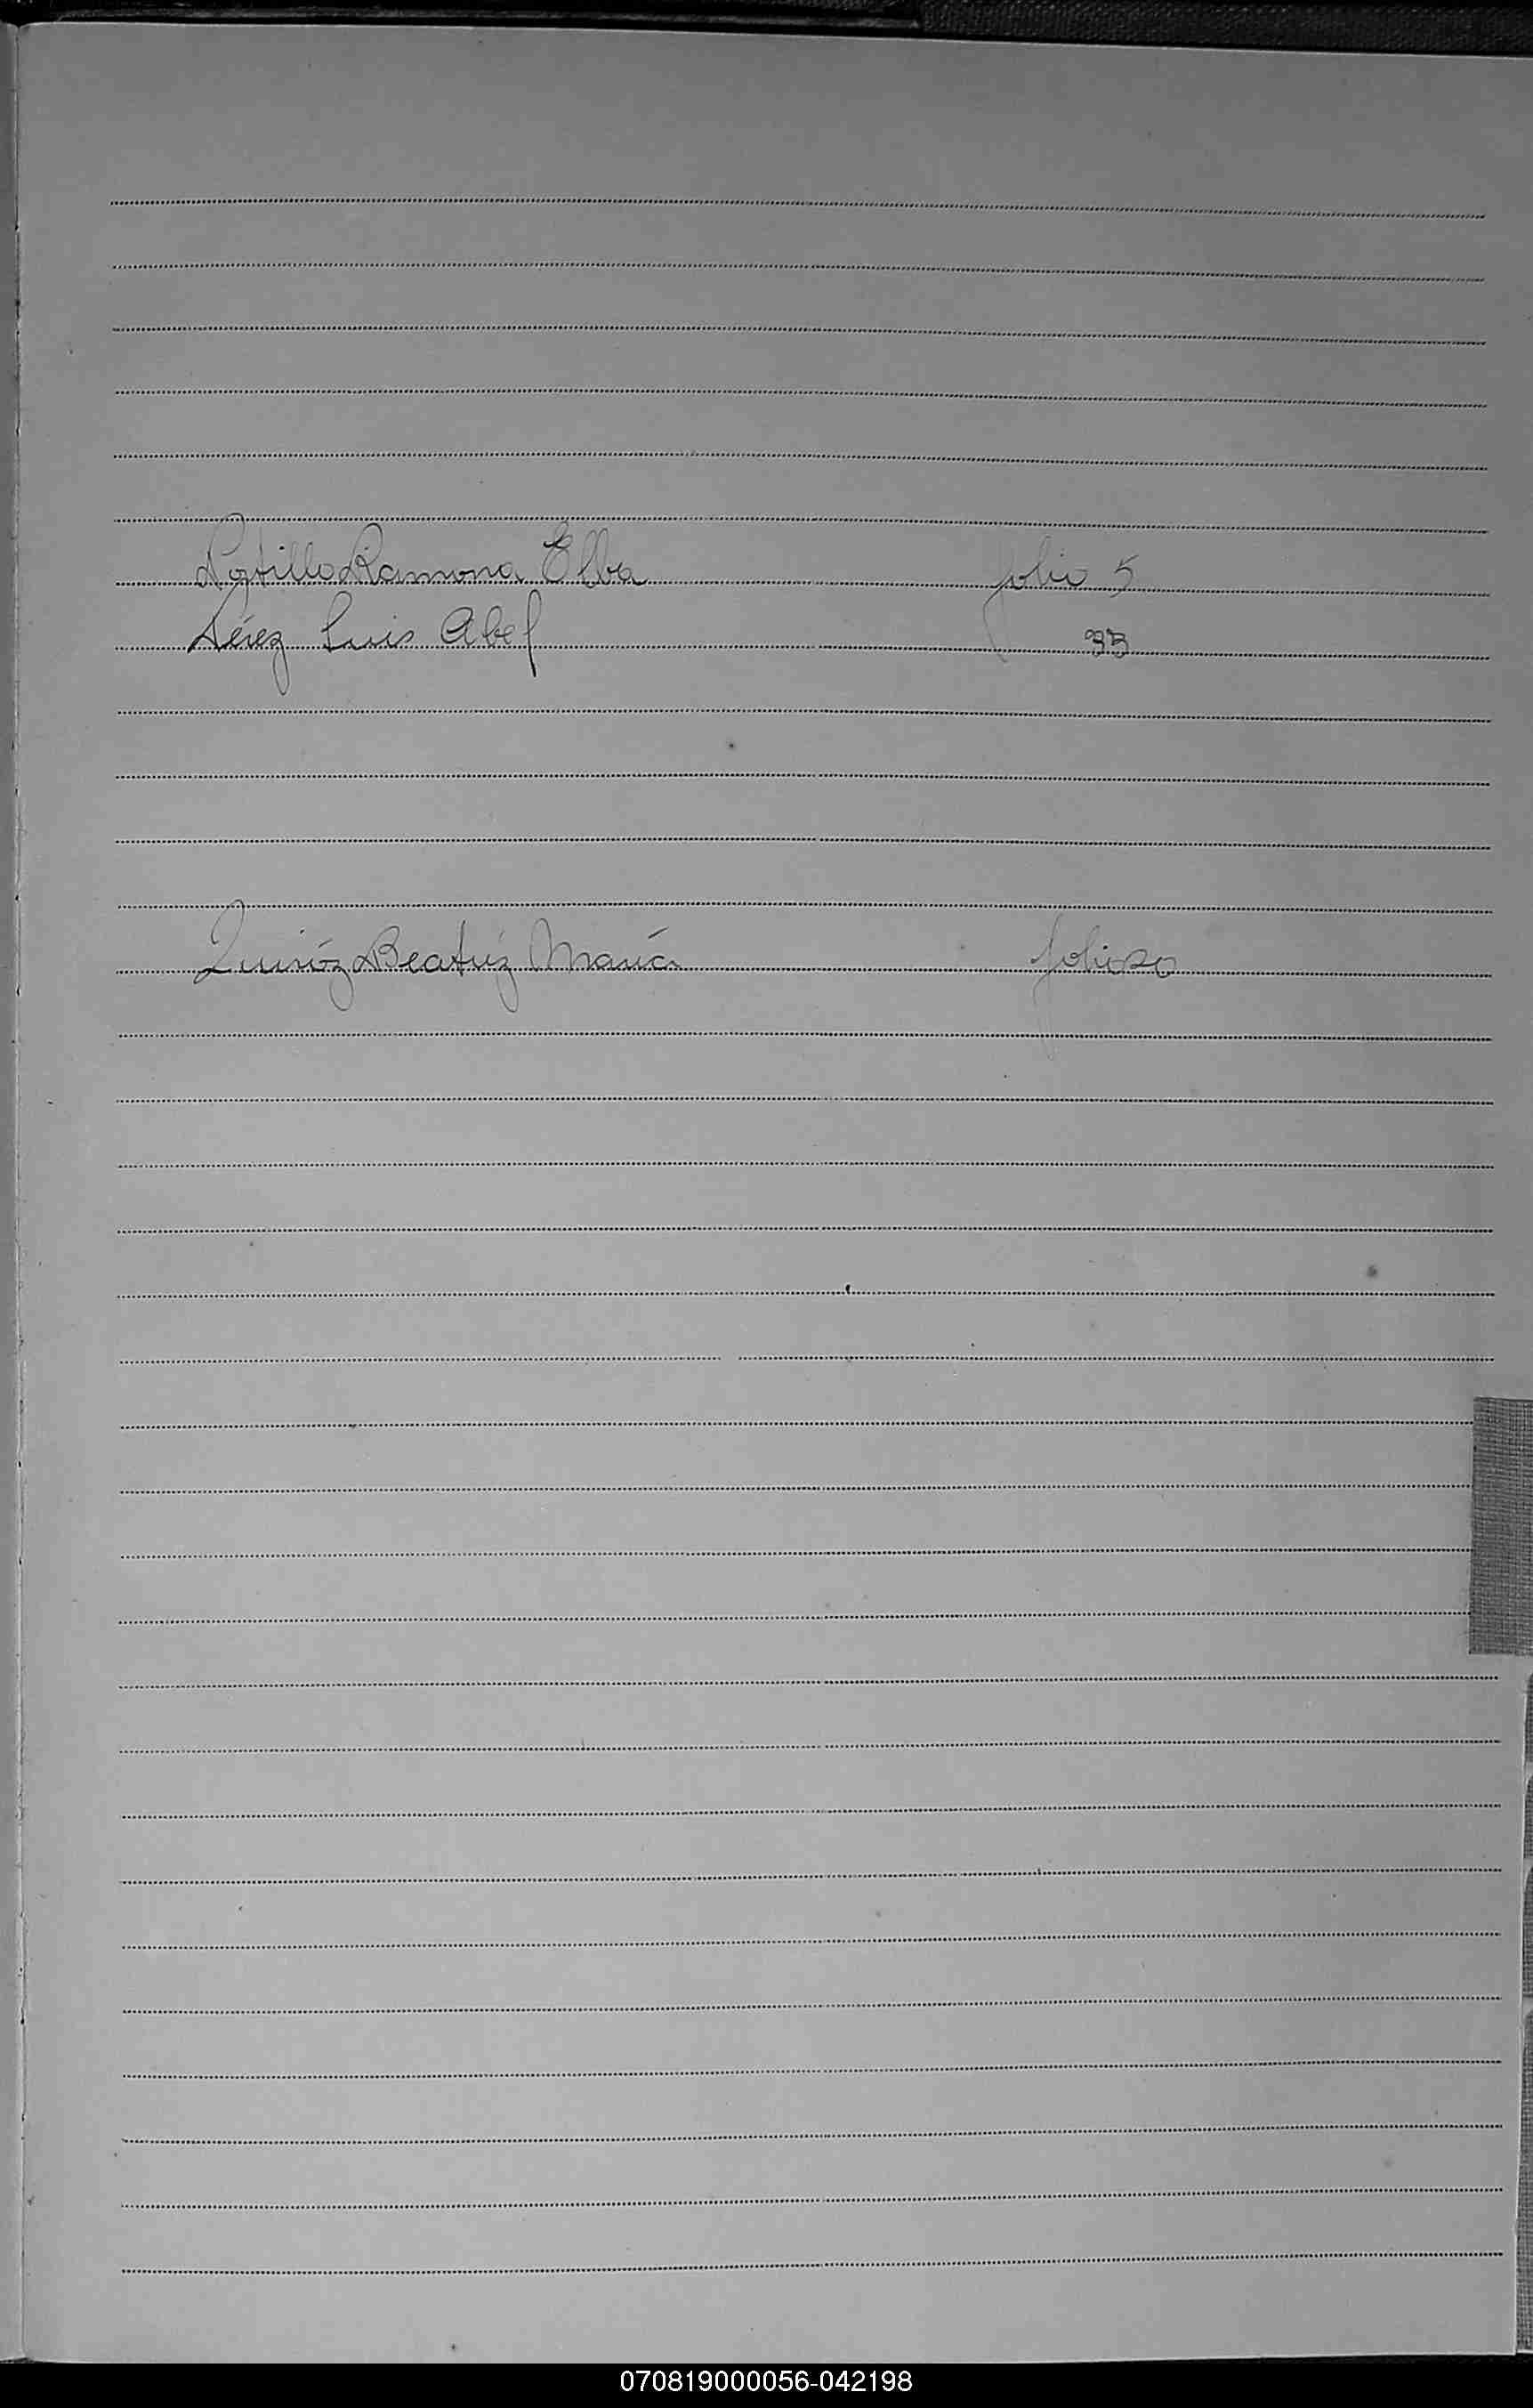 Portillo Ramona Elba folio 5
Pérez Luis Abel 33
Quiróz Beatríz María folio 20
070819000056-042198